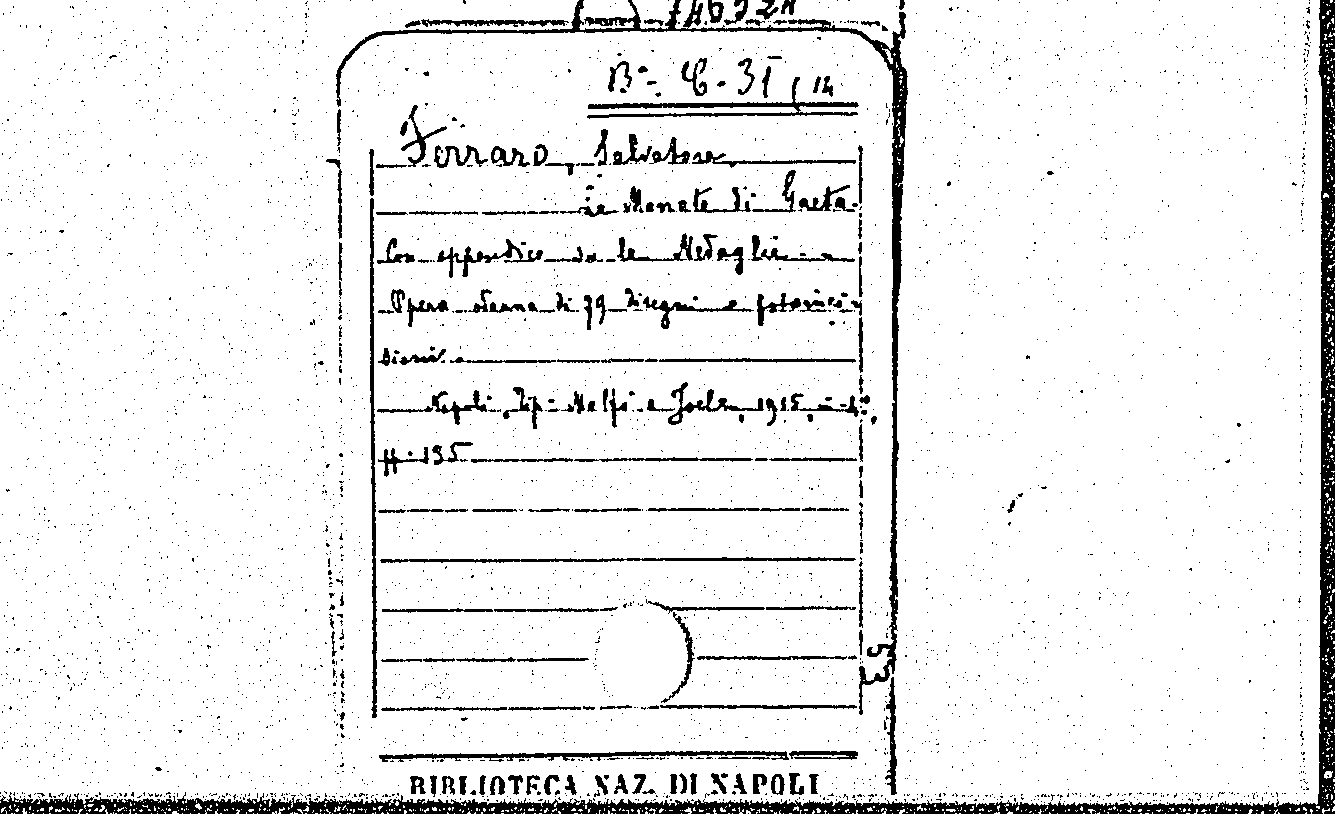 74652A
Bª. C. 31 (14
Ferraro, Salvatore
Le Monete di Gaeta.
Con appendice su le Medaglie -
Opera adorna di 79 disegni e fotoinci-
sioni.
Napoli, Tip. Melfi e Joele, 1915, in 4º,
pp. 135
53
BIBLIOTECA NAZ. DI NAPOLI